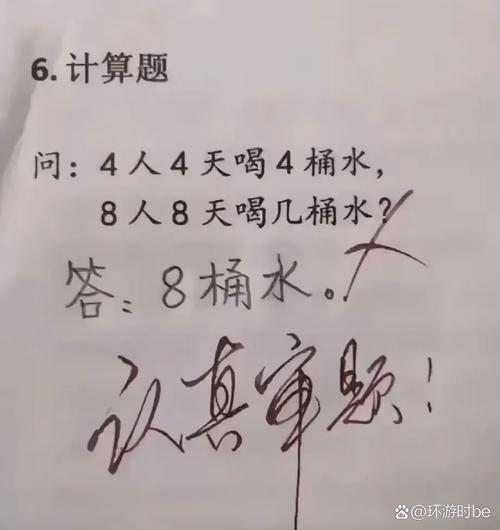 6. 计算题
问：4人4天喝4桶水，
8人8天喝几桶水？
答：8桶水。
认真审题！
@环游时be